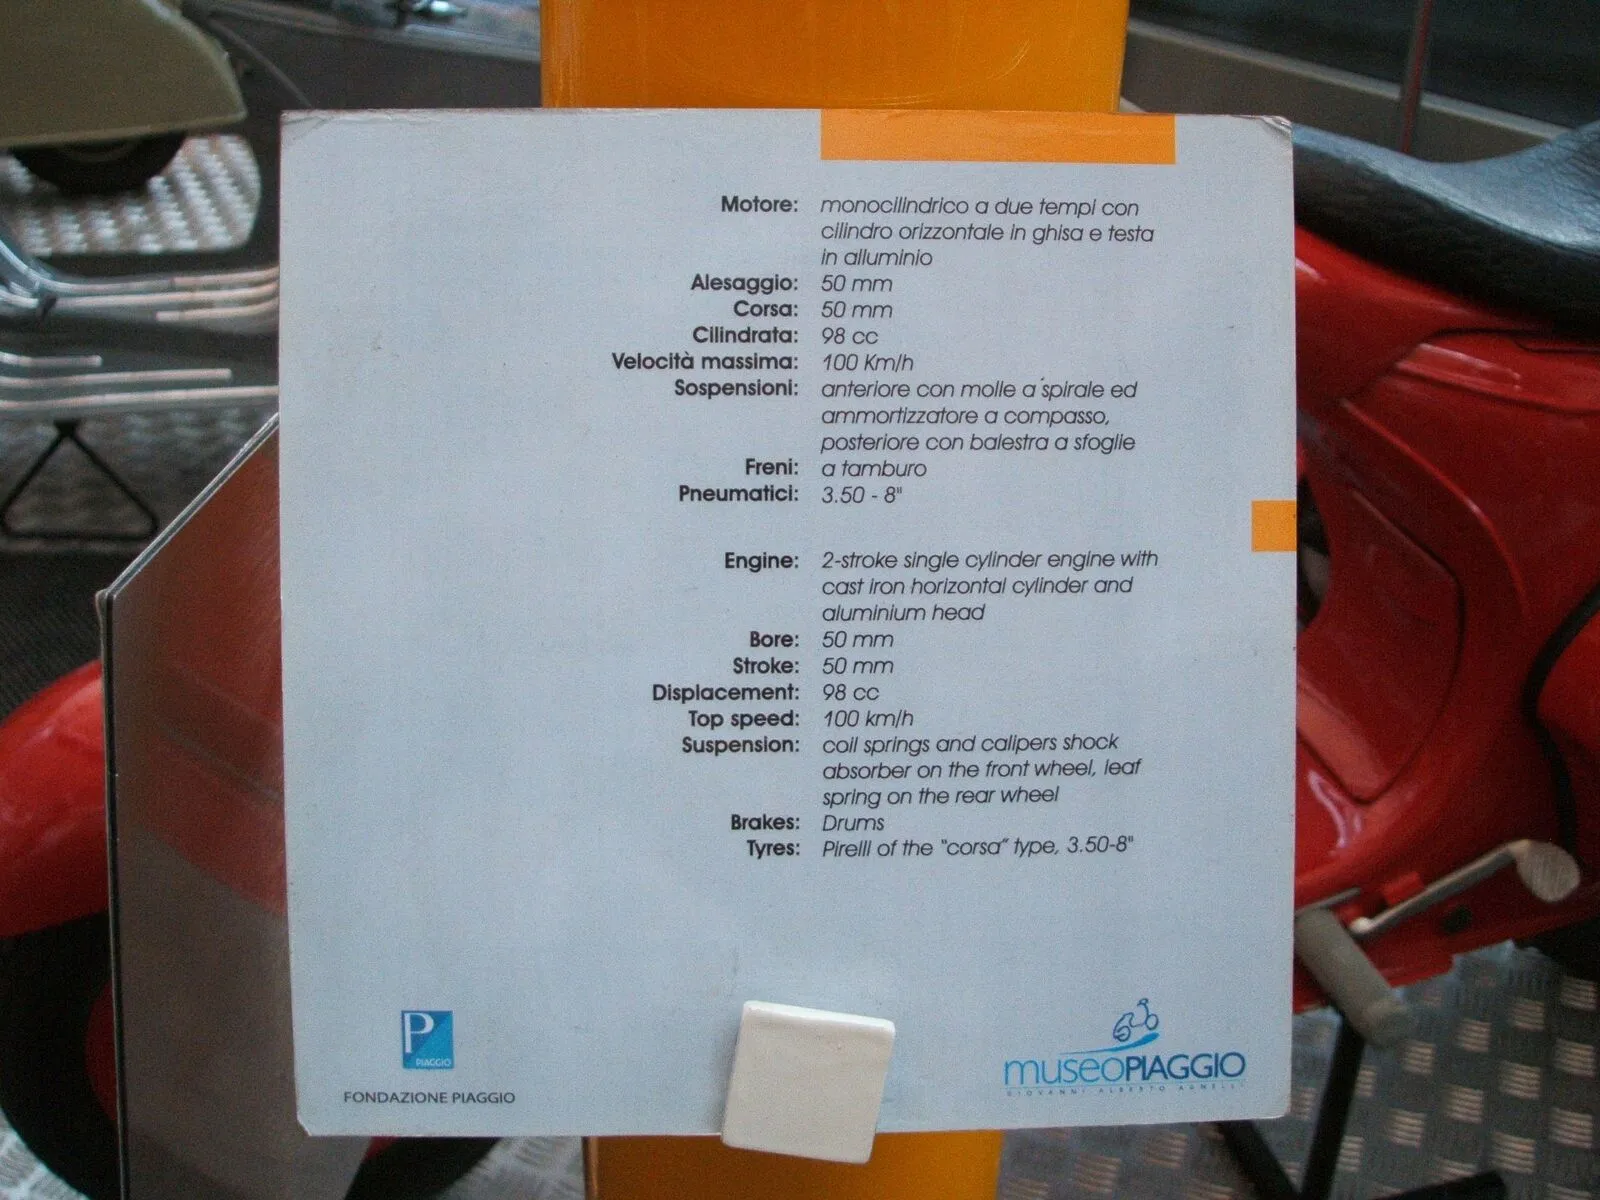 Motore: monocilindrico a due tempi con
cilindro orizzontale in ghisa e testa
in alluminio
Alesaggio: 50 mm
Corsa: 50 mm
Cilindrata: 98 cc
Velocità massima: 100 Km/h
Sospensioni: anteriore con molle a spirale ed
ammortizzatore a compasso,
posteriore con balestra a sfoglie
Freni: a tamburo
Pneumatici: 3.50 - 8"
Engine: 2-stroke single cylinder engine with
cast iron horizontal cylinder and
aluminium head
Bore: 50 mm
Stroke: 50 mm
Displacement: 98 cc
Top speed: 100 km/h
Suspension: coil springs and calipers shock
absorber on the front wheel, leaf
spring on the rear wheel
Brakes: Drums
Tyres: Pirelli of the "corsa" type, 3.50-8"
P
PIAGGIO
FONDAZIONE PIAGGIO
museoPIAGGIO
GIOVANNI ALBERTO AGNELLI